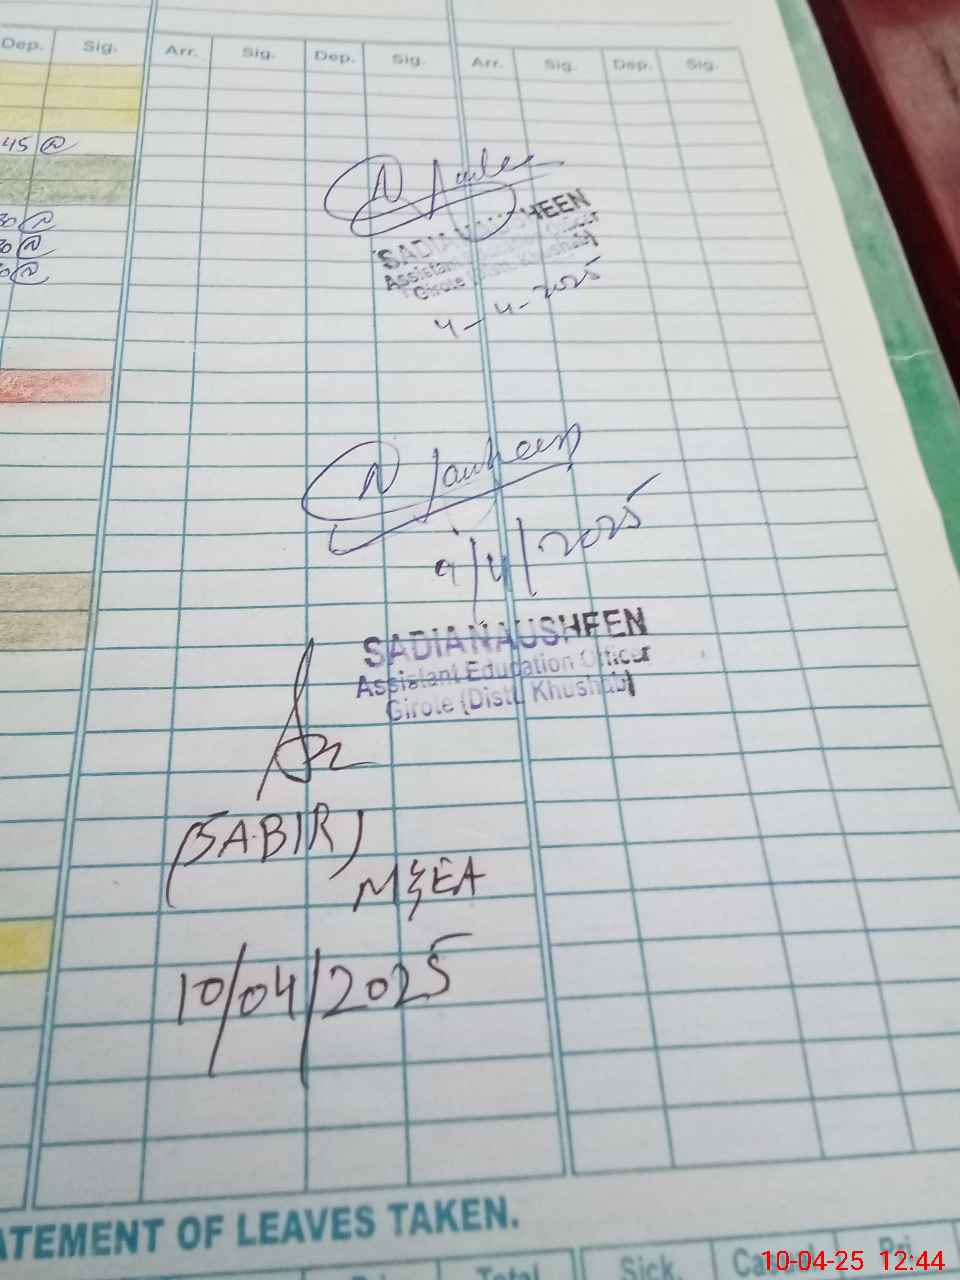 Dep. Sig. Arr. Sig. Dep. Sig. Arr. Sig. Dep. Sig.
45
SADIA NAUSHEEN
Assistant Education Officer
Girote (Distt. Khushab)
4-4-2025
Nausheen
9/4/2025
SADIA NAUSHEEN
Assistant Education Officer
Girote (Distt. Khushab)
(SABIR)
M&EA
10/04/2025
ATEMENT OF LEAVES TAKEN.
Total Sick. Casual Pri.
10-04-25 12:44